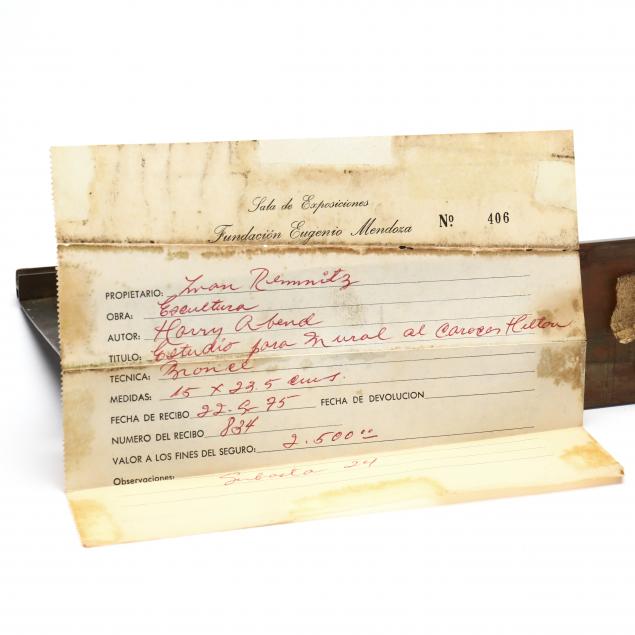 Sala de Exposiciones
Fundación Eugenio Mendoza
Nº 406
PROPIETARIO: Ivan Remnitz
OBRA: Escultura
AUTOR: Harry Abend
TITULO: Estudio para Mural al Caracas Hilton
TECNICA: Bronce
MEDIDAS: 15 x 23.5 cms.
FECHA DE RECIBO 22-5-75 FECHA DE DEVOLUCION
NUMERO DEL RECIBO 834
VALOR A LOS FINES DEL SEGURO: 2.500⁰⁰
Observaciones: Subasta 24